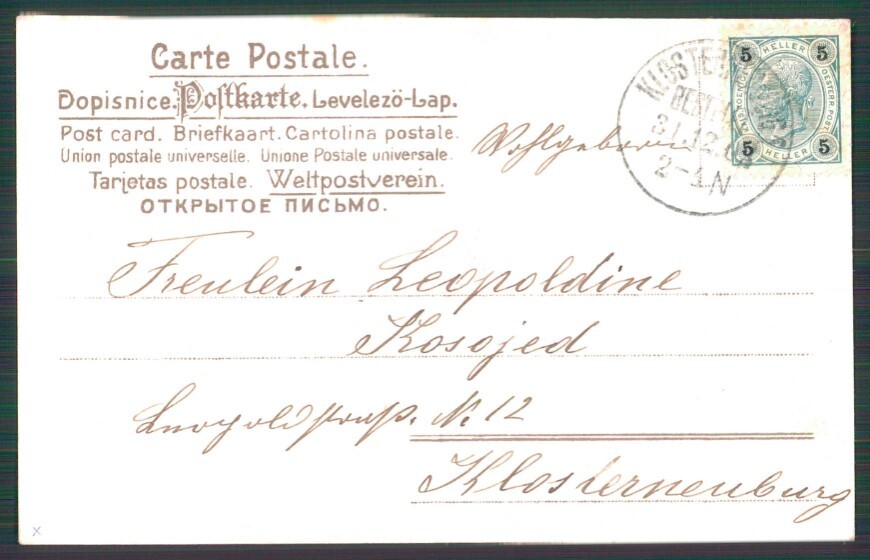 Carte Postale.
Dopisnice. Postkarte. Levelező-Lap.
Post card. Briefkaart. Cartolina postale.
Union postale universelle. Unione Postale universale.
Tarjetas postale. Weltpostverein.
ОТКРЫТОЕ ПИСЬМО.
5 HELLER 5
OESTERR. POST
5 HELLER 5
31.12
2-4 N
Wohlgeboren
Freulein Leopoldine
Kosojed
Leopoldstraße. No: 12
Klosterneuburg
x